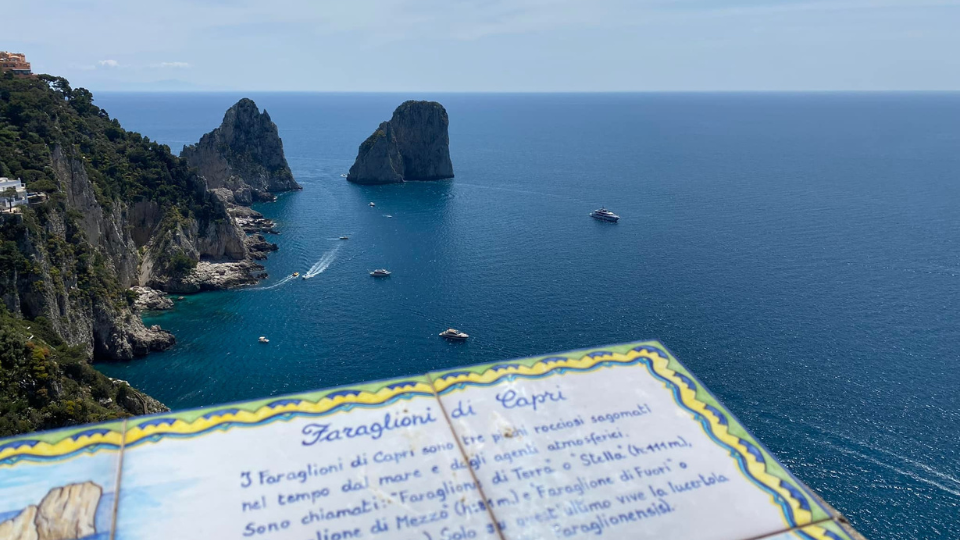 Faraglioni di Capri
I Faraglioni di Capri sono tre picchi rocciosi sagomati
nel tempo dal mare e dagli agenti atmosferici.
Sono chiamati: "Faraglione di Terra o Stella (h.111m),
di Mezzo e Faraglione di Fuori" o
Solo su quest'ultimo vive la lucertola
Faraglionensis).